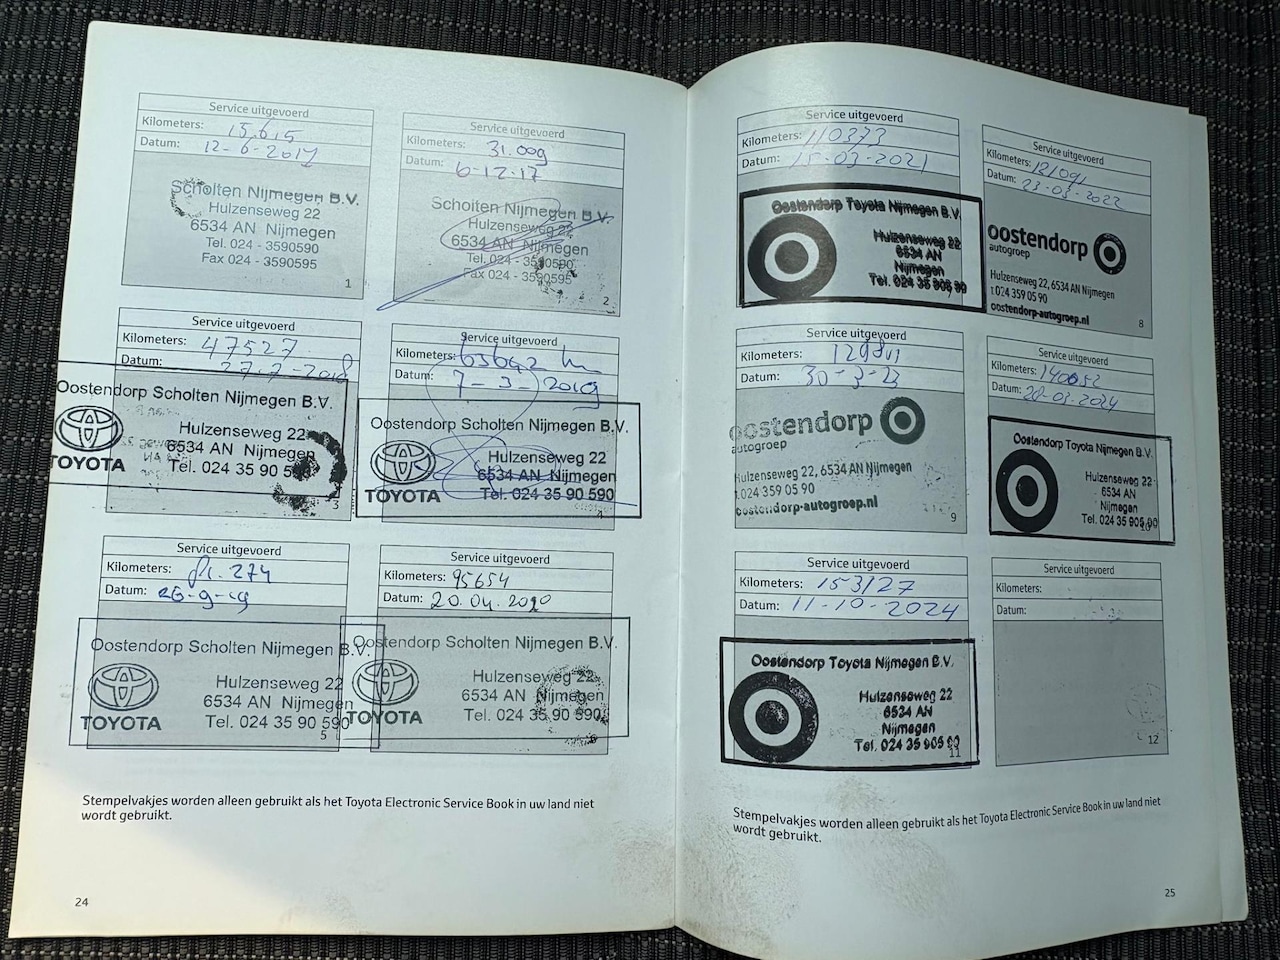 Service uitgevoerd
Kilometers: 15.615
Datum: 12-6-2017
Scholten Nijmegen B.V.
Hulzenseweg 22
6534 AN Nijmegen
Tel. 024 - 3590590
Fax 024 - 3590595
1
Service uitgevoerd
Kilometers: 31.009
Datum: 6-12-17
Scholten Nijmegen B.V.
Hulzenseweg 22
6534 AN Nijmegen
Tel. 024 - 3590590
Fax 024 - 3590595
2
Service uitgevoerd
Kilometers: 47527
Datum: 27-7-2018
Oostendorp Scholten Nijmegen B.V.
Hulzenseweg 22
6534 AN Nijmegen
Tel. 024 35 90 5
TOYOTA
3
Service uitgevoerd
Kilometers: 63642 km
Datum: 7-3-2019
Oostendorp Scholten Nijmegen B.V.
Hulzenseweg 22
6534 AN Nijmegen
Tel. 024 35 90 590
TOYOTA
4
Service uitgevoerd
Kilometers:
Datum: 26-9-19
Oostendorp Scholten Nijmegen B.V.
Hulzenseweg 22
6534 AN Nijmegen
Tel. 024 35 90 590
TOYOTA
5
Service uitgevoerd
Kilometers: 95654
Datum: 20.04.2020
Oostendorp Scholten Nijmegen B.V.
Hulzenseweg 22
6534 AN Nijmegen
Tel. 024 35 90 590
TOYOTA
6
Stempelvakjes worden alleen gebruikt als het Toyota Electronic Service Book in uw land niet
wordt gebruikt.
24
Service uitgevoerd
Kilometers: 110373
Datum: 15-03-2021
Oostendorp Toyota Nijmegen B.V.
Hulzenseweg 22
6534 AN
Nijmegen
Tel. 024 35 905 90
Service uitgevoerd
Kilometers: 121091
Datum: 23-03-2022
oostendorp
autogroep
Hulzenseweg 22, 6534 AN Nijmegen
t 024 359 05 90
oostendorp-autogroep.nl
8
Service uitgevoerd
Kilometers:
Datum: 30-3-23
oostendorp
autogroep
Hulzenseweg 22, 6534 AN Nijmegen
t 024 359 05 90
oostendorp-autogroep.nl
9
Service uitgevoerd
Kilometers: 140652
Datum: 28-03-2024
Oostendorp Toyota Nijmegen B.V.
Hulzenseweg 22
6534 AN
Nijmegen
Tel. 024 35 905 90
10
Service uitgevoerd
Kilometers: 153127
Datum: 11-10-2024
Oostendorp Toyota Nijmegen B.V.
Hulzenseweg 22
6534 AN
Nijmegen
Tel. 024 35 905 90
11
Service uitgevoerd
Kilometers:
Datum:
12
Stempelvakjes worden alleen gebruikt als het Toyota Electronic Service Book in uw land niet
wordt gebruikt.
25